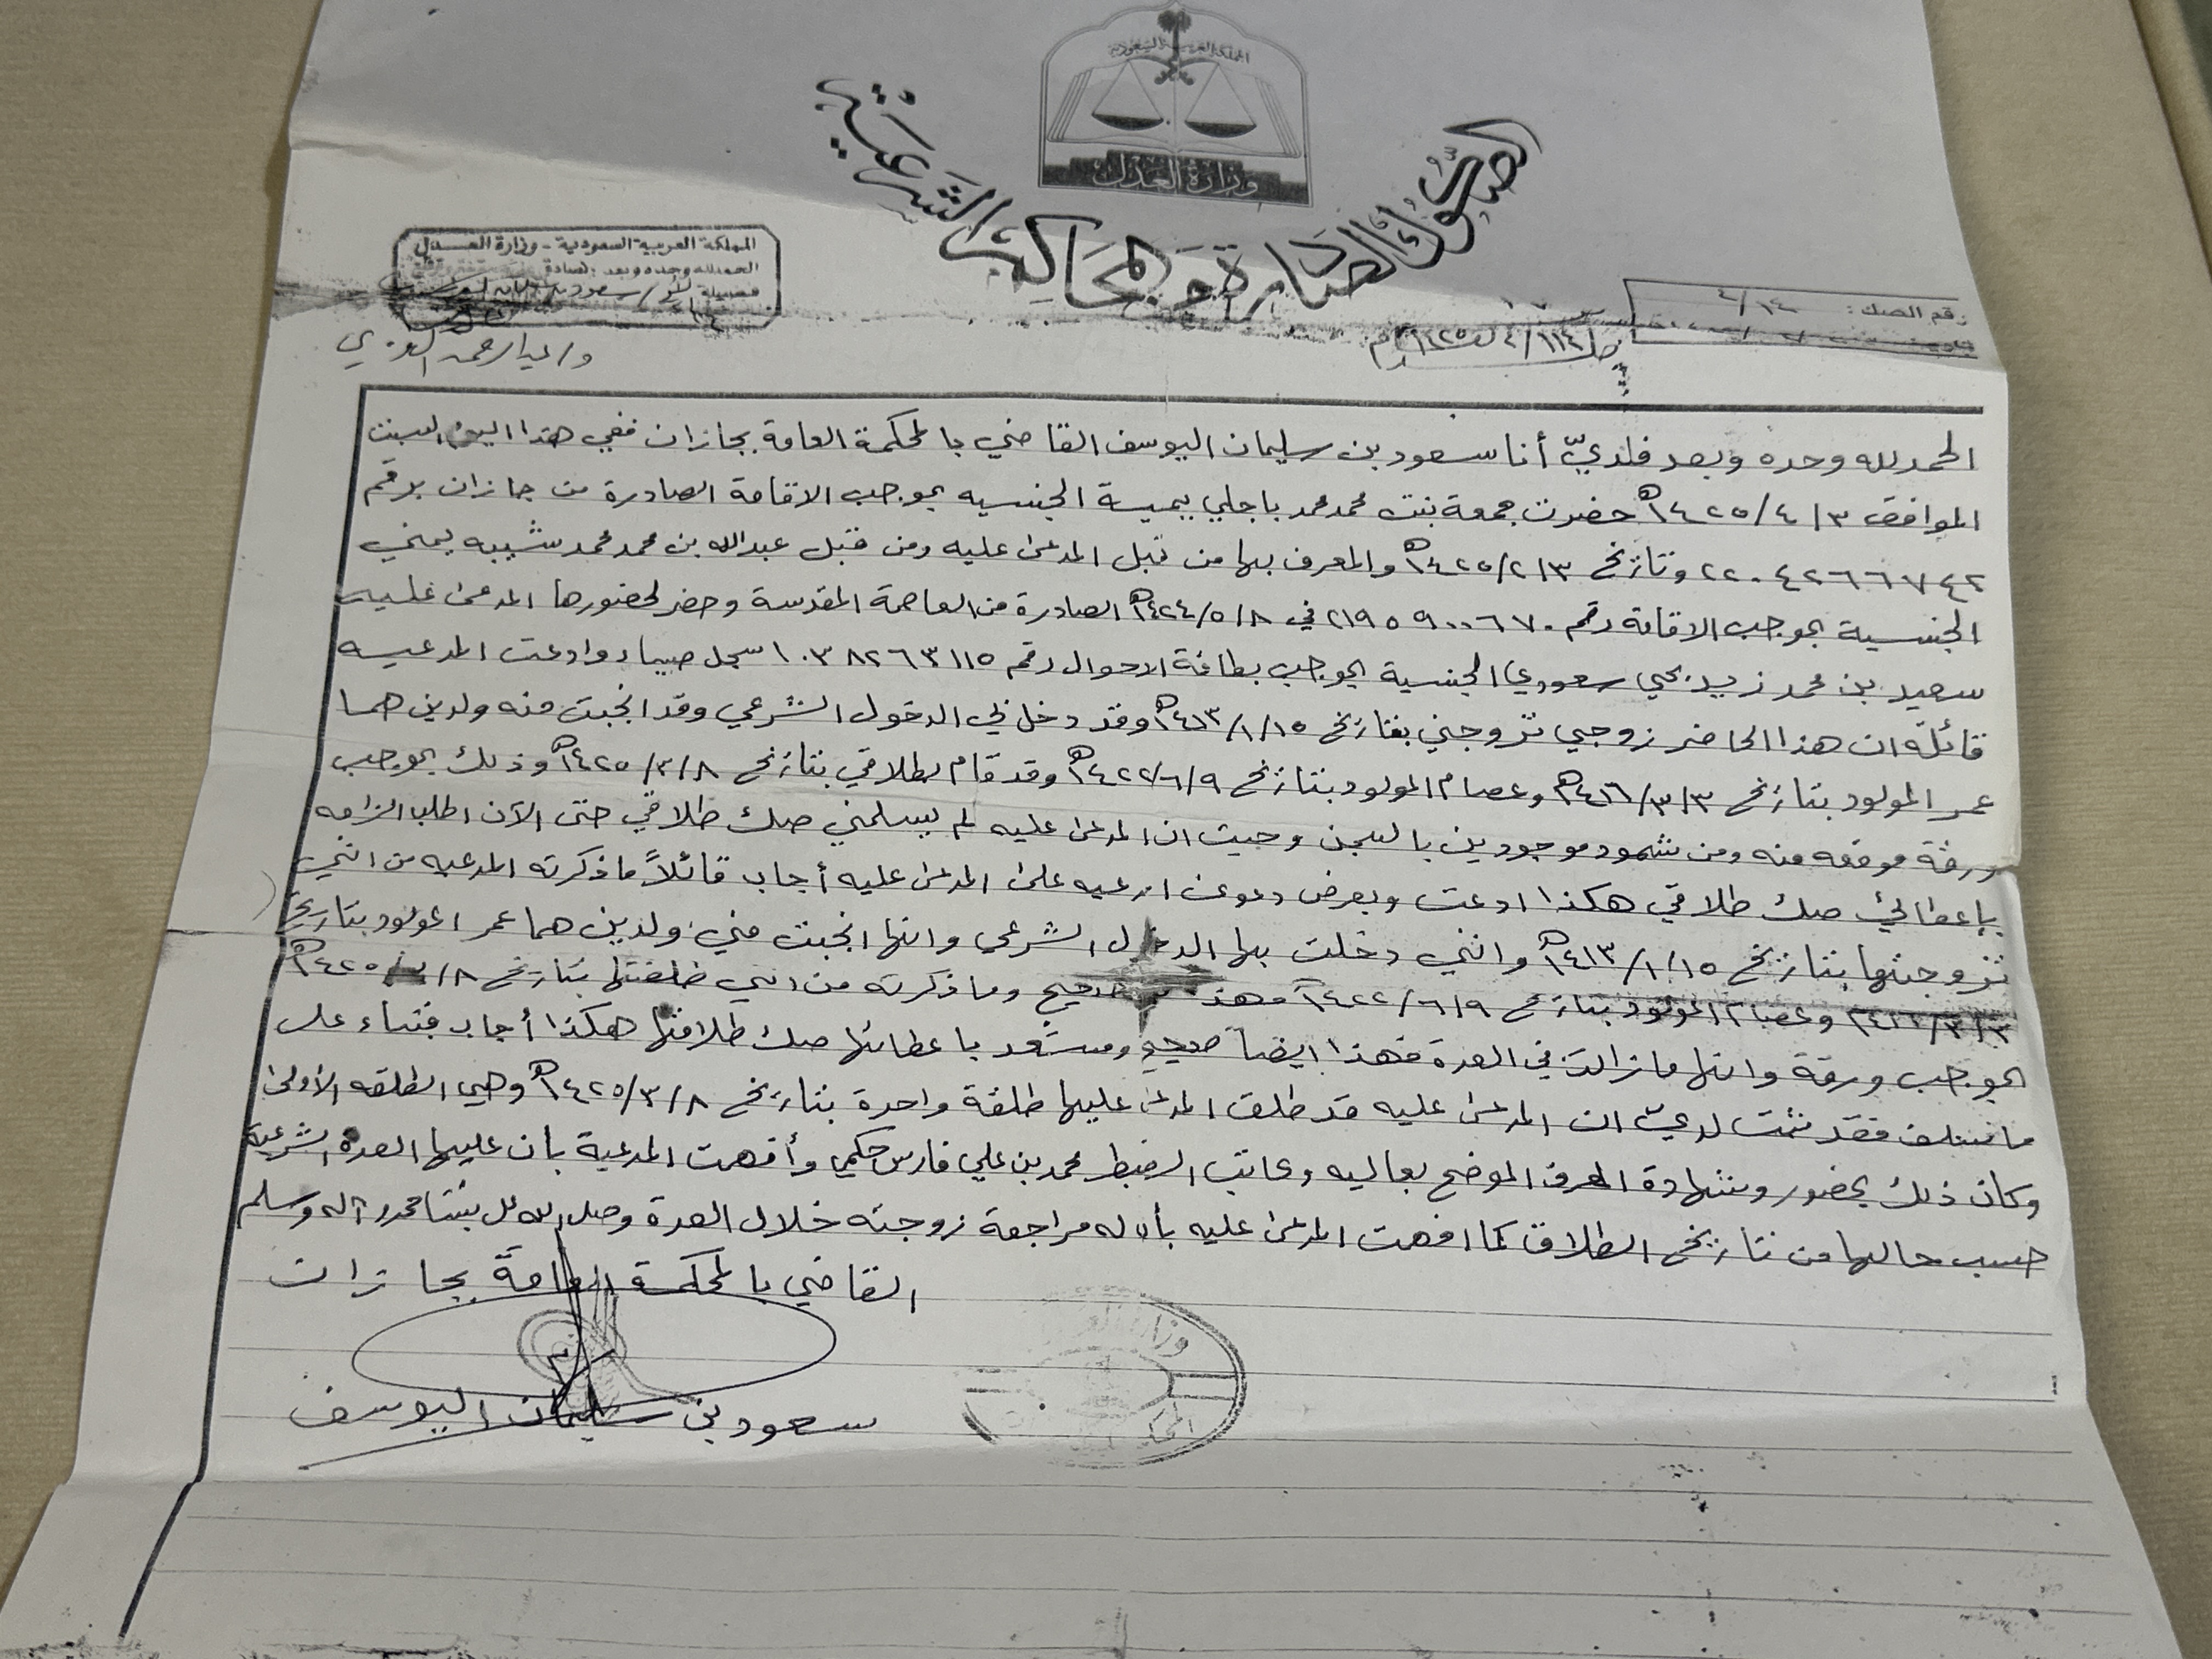 المملكة العربية السعودية
وزارة العدل
الصكوك الصادرة من المحاكم الشرعية
المملكة العربية السعودية - وزارة العدل
الحمد لله وحده وبعد
فضيلة الشيخ / سعود بن سليمان اليوسف
رقم الصك: ٤/١٤
الحمد لله وحده وبعد فلديّ أنا سعود بن سليمان اليوسف القاضي بالمحكمة العامة بجازان ففي هذا اليوم السبت
الموافق ١٤٢٥/٤/٣هـ حضرت جمعة بنت محمد محمد باجلي يمنية الجنسيه بموجب الاقامة الصادرة من جازان برقم
٢٢٠٤٢٦٦٧٤٢ وتاريخ ١٤٢٥/٢/٣هـ والمعرف بها من قبل المدعى عليه ومن قبل عبدالله بن محمد محمد شيبه يمني
الجنسية بموجب الاقامة رقم ٢١٩٥٩٠٠٦٧٠ في ١٤٢٤/٥/٨هـ الصادرة من العاصمة المقدسة وحضر لحضورها المدعى عليه
سعيد بن محمد زيد يحي سعودي الجنسية بموجب بطاقة الاحوال رقم ١٠٣٨٢٦٣١١٥ سجل صبيا وادعت المدعيه
قائلة ان هذا الحاضر زوجي تزوجني بتاريخ ١٤١٣/١/١٥هـ وقد دخل بي الدخول الشرعي وقد انجبت منه ولدين هما
عمر المولود بتاريخ ١٤١٦/٣/٣هـ وعصام المولود بتاريخ ١٤٢٢/٦/٩هـ وقد قام بطلاقي بتاريخ ١٤٢٥/٣/٨هـ وذلك بموجب
ورقة موقعه منه ومن شهود موجودين بالسجن وحيث ان المدعى عليه لم يسلمني صك طلاقي حتى الآن اطلب الزامه
بإعطائي صك طلاقي هكذا ادعت وبعرض دعوى المدعيه على المدعى عليه أجاب قائلاً ما ذكرته المدعيه من انني
تزوجتها بتاريخ ١٤١٣/١/١٥هـ وانني دخلت بها الدخول الشرعي وانها انجبت مني ولدين هما عمر المولود بتاريخ
وعصام المولود بتاريخ ١٤٢٢/٦/٩هـ فهذا صحيح وما ذكرته من انني طلقتها بتاريخ
بموجب ورقة وانها مازالت في العدة فهذا ايضاً صحيح ومستعد باعطائها صك طلاقها هكذا أجاب فبناء على
ما سلف فقد ثبت لديّ ان المدعى عليه قد طلق المدعى عليها طلقة واحدة بتاريخ ١٤٢٥/٣/٨هـ وهي الطلقه الأولى
وكان ذلك بحضور وشهادة المعرف الموضح بعاليه وكاتب الضبط محمد بن علي فارس حكمي وأفهمت المدعية بأن عليها العدة الشرعية
حسب حالها من تاريخ الطلاق كما افهمت المدعى عليه بأن له مراجعة زوجته خلال العدة وصلى الله على نبينا محمد وآله وسلم
القاضي بالمحكمة العامة بجازان
سعود بن سليمان اليوسف